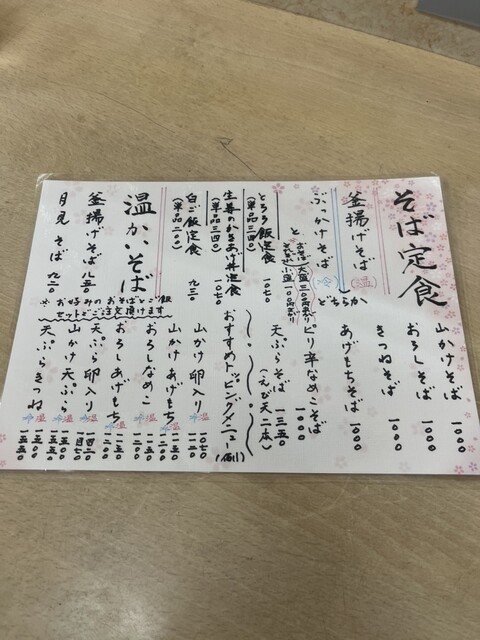 そば定食
釜揚げそば (温)
ぶっかけそば (冷)
どちらか
と
おそば 大盛 三〇〇円増し
小盛 一〇〇円
とろろ飯定食 一〇七〇
(単品 三四〇)
生寿のかきあげ丼定食 一〇七〇
(単品 三四〇)
白ご飯定食 九三〇
(単品 二〇〇)
温かいそば
釜揚げそば 八五〇
月見そば 九二〇
※お好みのおそばとご飯
セットでご注文頂けます
山かけそば 一〇〇〇
おろしそば 一〇〇〇
きつねそば 一〇〇〇
あげもちそば 一〇〇〇
ピリ辛なめこそば 一〇〇〇
天ぷらそば 一三五〇
(えび天二本)
おすすめトッピングメニュー(例)
山かけ卵入り 一〇七〇
山かけあげもち 温 冷
おろしなめこ 温 冷
おろしあげもち 温 冷
天ぷら卵入り 温 冷
山かけ天ぷら 温 冷
天ぷらきつね 温 冷